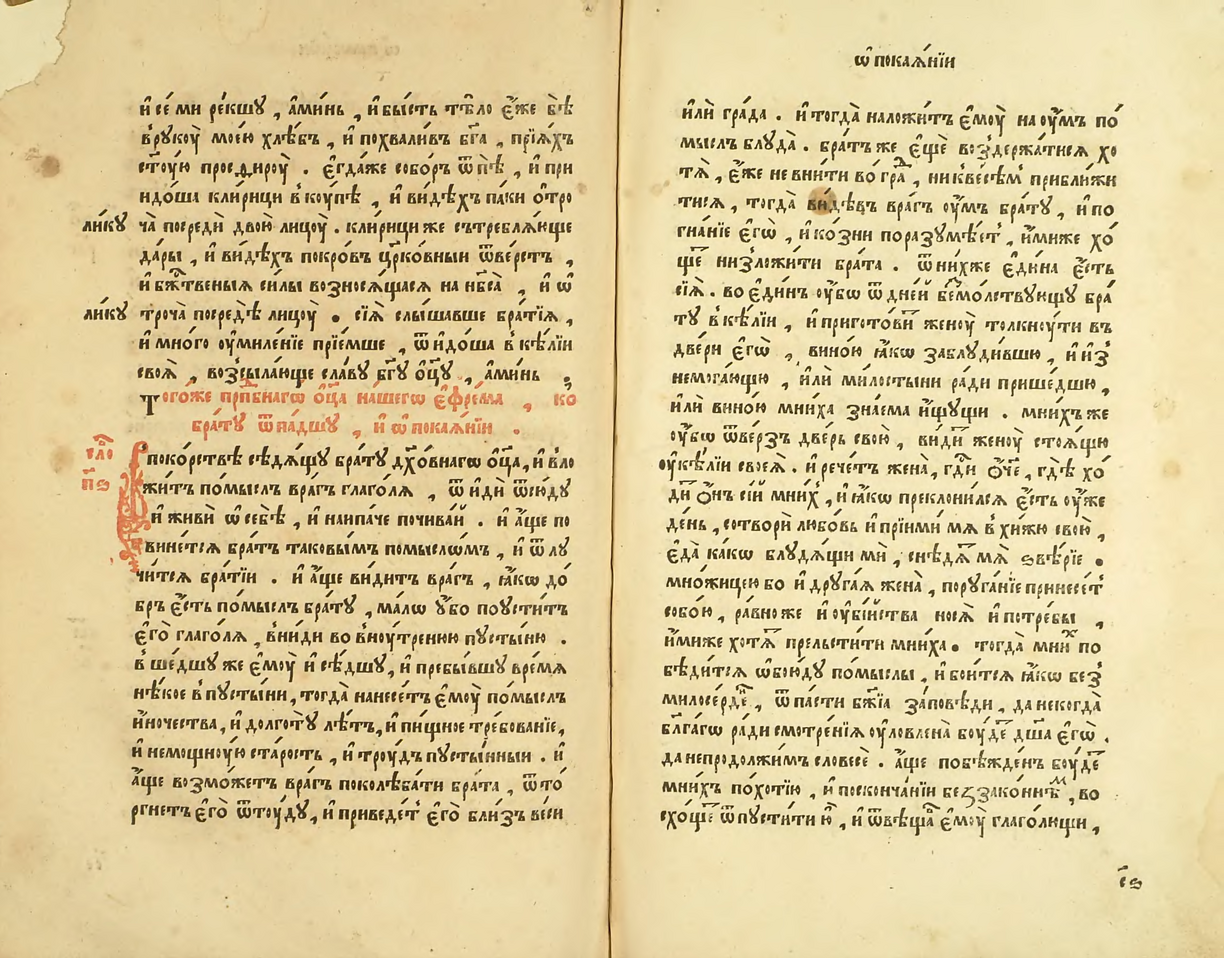 и҆ се́ ми ре́кшꙋ , а҆ми́нь , и҆ бы́сть тѣ́ло є҆́же бѣ̀
в̾рꙋкоу̀ мое́ю хлѣ́бъ , и҆ похвали́въ бг҃а , прїѧ́хъ
ст҃о́ую просѳироу̀ . є҆гда́же собо́ръ ѿпѣ̀ , и҆ при
идо́ша кли́рици в̾коу́пѣ , и҆ ви́дѣхъ па́ки ѻ҆тро
лику
ча̀ посредѝ двою̀ лицоу̀ . кли́рици же сътреблѧ́юще
да́ры , и҆ ви́дѣхъ покро́въ цр҃ко́вныи ѿве́рстъ ,
и҆ бж҃твеныѧ си́лы возносѧ́щасѧ на нб҃са̀ , и҆ ѡ
лику
троча̀ посредѣ̀ лицоу̀ . сїѧ̀ слы́шавше бра́тїѧ ,
и҆ мно́го оу҆миле́нїе прїе́мше , ѿидо́ша в̾кѣ́лїи
своѧ̀ , воз̾сыла́юще сла́вꙋ бг҃ꙋ ѻ҆ц҃ꙋ , а҆ми́нь .
Того́же прпⷣбнагѡ ѻ҆ц҃а на́шегѡ є҆фре́ма , ко
бра́тꙋ ѿпа́дшꙋ , и҆ ѡ покаѧ́нїи .
сло
п҃ѕ
В̾покорствѣ сѣдѧ́щꙋ бра́тꙋ дх҃о́внагѡ ѻ҆ц҃а , и҆ вло
жи́тъ по́мыслъ вра́гъ глаго́лѧ , ѿидѝ ѿсю́дꙋ
и҆ живѝ ѡ себѣ̀ , и҆ наипа́че почива́й . и҆ а҆́ще по
вине́тсѧ бра́тъ таковы́мъ по́мысломъ , и҆ ѿлꙋ
чи́тсѧ бра́тїи . и҆ а҆́ще ви́дитъ вра́гъ , ꙗ҆́кѡ до́
бръ є҆́сть по́мыслъ бра́тꙋ , ма́лѡ ꙋ҆́бо попꙋ́ститъ
є҆го̀ глаго́лѧ , вни́ди во вноу́треннюю пꙋсты́ню .
в̾ше́дшꙋ же є҆моу̀ и҆ сѣ́дшꙋ , и҆ пребы́вшꙋ вре́мѧ
нѣ́кое в̾пꙋсты́ни , тогда̀ нанесе́тъ є҆моу̀ по́мыслъ
и҆́ночества , и҆ долготꙋ̀ лѣ́тъ , и҆ пи́щное тре́бованїе ,
и҆ не́мощноую ста́рость , и҆ троу́дъ пꙋсты́нныи . и҆
а҆́ще возмо́жетъ вра́гъ поколѣба́ти бра́та , ѿто́
ргнетъ є҆го̀ ѿтоу́дꙋ , и҆ приведе́тъ є҆го̀ бли́зъ ве́си
ѡ покаѧ́нїи
и҆лѝ гра́да . и҆ тогда̀ наложи́тъ є҆моу̀ на оу҆́мъ по́
мыслъ блꙋда̀ . бра́тъ же є҆щѐ воздержа́тисѧ хо
тѧ̀ , є҆́же не вни́ти во гра́ⷣ , ни к̾ве́семⸯ прибли́жи
тисѧ , тогда̀ ви́дѣвъ вра́гъ оу҆́мъ бра́тꙋ , и҆ по
гна́нїе є҆гѡ̀ , и҆ ко́зни поразꙋмѣ́етⸯ , и҆́миже хо́
щеⷮ низ̾ложи́ти бра́та . ѿ ни́хже є҆ди́на є҆́сть
сїѧ̀ . во є҆ди́нъ оу҆́бѡ ѿ дне́й безмо́лствꙋющꙋ бра́
тꙋ в̾кѣ́лїи , и҆ пригото́виⷮ женоу̀ толкноу́ти въ
две́ри є҆гѡ̀ , вино́ю ꙗ҆́кѡ заблꙋди́вшю , и҆ и҆з̾
немога́ющю , и҆лѝ ми́лостыни ра́ди прише́дшю ,
и҆лѝ вино́ю мни́ха зна́ема и҆́щꙋщи . мни́хъ же
оу҆́бѡ ѿве́рзъ две́рь свою̀ , ви́диⷮ женоу̀ стоѧ́щю
оу҆ кѣ́лїи своеѧ̀ . и҆ рече́тъ жена̀ , гдⷭ҇и ѻ҆́ч҃е , гдѣ̀ хо́
диⷮ ѻ҆́нъ сі́й мни́хⸯ , и҆ ꙗ҆́кѡ преклони́лсѧ є҆́сть оу҆́же
де́нь , сотворѝ любо́вь и҆ прїимѝ мѧ̀ в̾хи́жю свою̀ ,
є҆да̀ ка́кѡ блꙋдѧ́щи мѝ , снѣдѧ́ⷮ мѧ̀ ѕвѣ́рїе .
мно́жицею бо и҆ дрꙋга́ѧ жена̀ , порꙋга́нїе принесе́тⸯ
собо́ю , ра́вно же и҆ оу҆бі́йства носѧ̀ и҆ потре́бы ,
и҆́миже хотѧ́ⷮ прельсти́ти мни́ха . тогда̀ мни́ⷯ по
бѣди́тсѧ ѡбою́дꙋ по́мыслы , и҆ бои́тсѧ ꙗ҆́кѡ без̾
милосе́рдеⷩ , ѿпа́сти бж҃їа за́повѣди , да некогда̀
бл҃га́гѡ ра́ди смотре́нїѧ оу҆ловлена̀ боу́деⷮ дш҃а є҆гѡ̀ .
да непродолжи́мъ словесѐ . а҆́ще побѣжде́нъ боу́деⷮ
мни́хъ по́хотїю , и҆ посконча́нїи беззако́ннѣⷨ , во
схо́щеⷮ ѿпꙋсти́ти ю҆̀ , и҆ ѿвѣща́ⷮ є҆моу̀ глаго́лющи ,
с҃ѕ